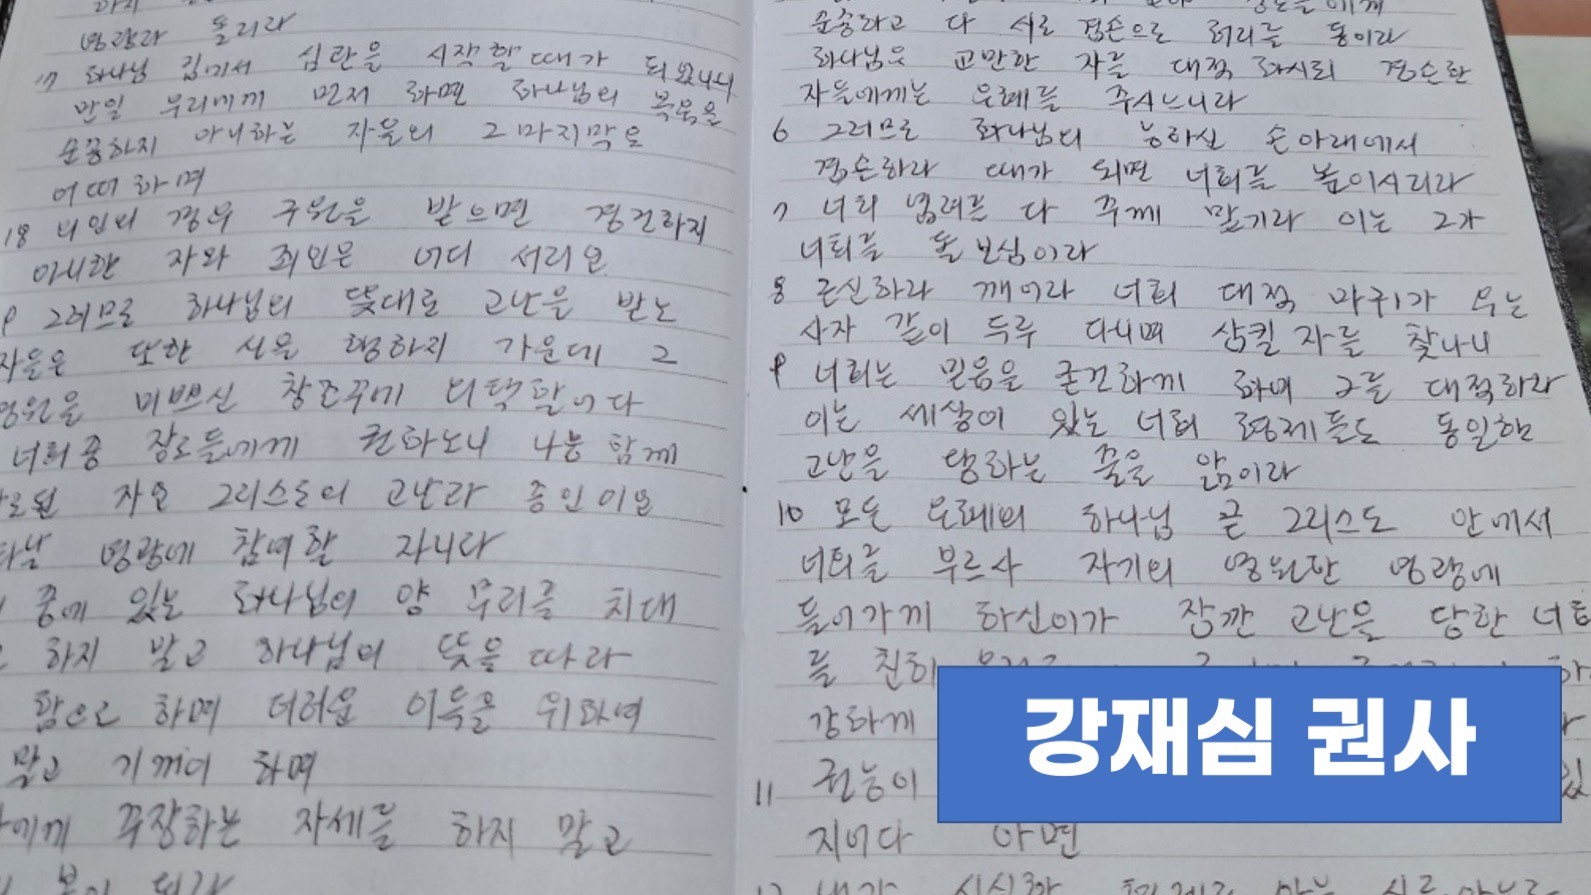 영광과 돌리라
17 하나님 집에서 심판을 시작할 때가 되었나니
만일 우리에게 먼저 하면 하나님의 복음을
순종하지 아니하는 자들의 그 마지막은
어떠하며
18 의인이 겨우 구원을 받으면 경건하지
아니한 자와 죄인은 어디 서리요
그러므로 하나님의 뜻대로 고난을 받는
자들은 또한 선을 행하는 가운데 그
영원을 미쁘신 창조주께 의탁할지어다
너희 중 장로들에게 권하노니 나는 함께
자요 그리스도의 고난과 증인이요
영광에 참여할 자니라
중에 있는 하나님의 양 무리를 치되
하지 말고 하나님의 뜻을 따라
함으로 하며 더러운 이득을 위하여
말고 기꺼이 하며
에게 주장하는 자세를 하지 말고
본이 되라
순종하고 다 서로 겸손으로 허리를 동이라
하나님은 교만한 자를 대적 하시되 겸손한
자들에게는 은혜를 주시느니라
6 그러므로 하나님의 능하신 손 아래에서
겸손하라 때가 되면 너희를 높이시리라
7 너희 염려를 다 주께 맡기라 이는 그가
너희를 돌 보심이라
8 근신하라 깨어라 너희 대적 마귀가 우는
사자 같이 두루 다니며 삼킬 자를 찾나니
9 너희는 믿음을 굳건하게 하여 그를 대적하라
이는 세상에 있는 너희 형제들도 동일한
고난을 당하는 줄을 앎이라
10 모든 은혜의 하나님 곧 그리스도 안에서
너희를 부르사 자기의 영원한 영광에
들어가게 하신이가 잠깐 고난을 당한 너희
를 친히
강하게
11 권능이
지어다 아멘
강재심 권사